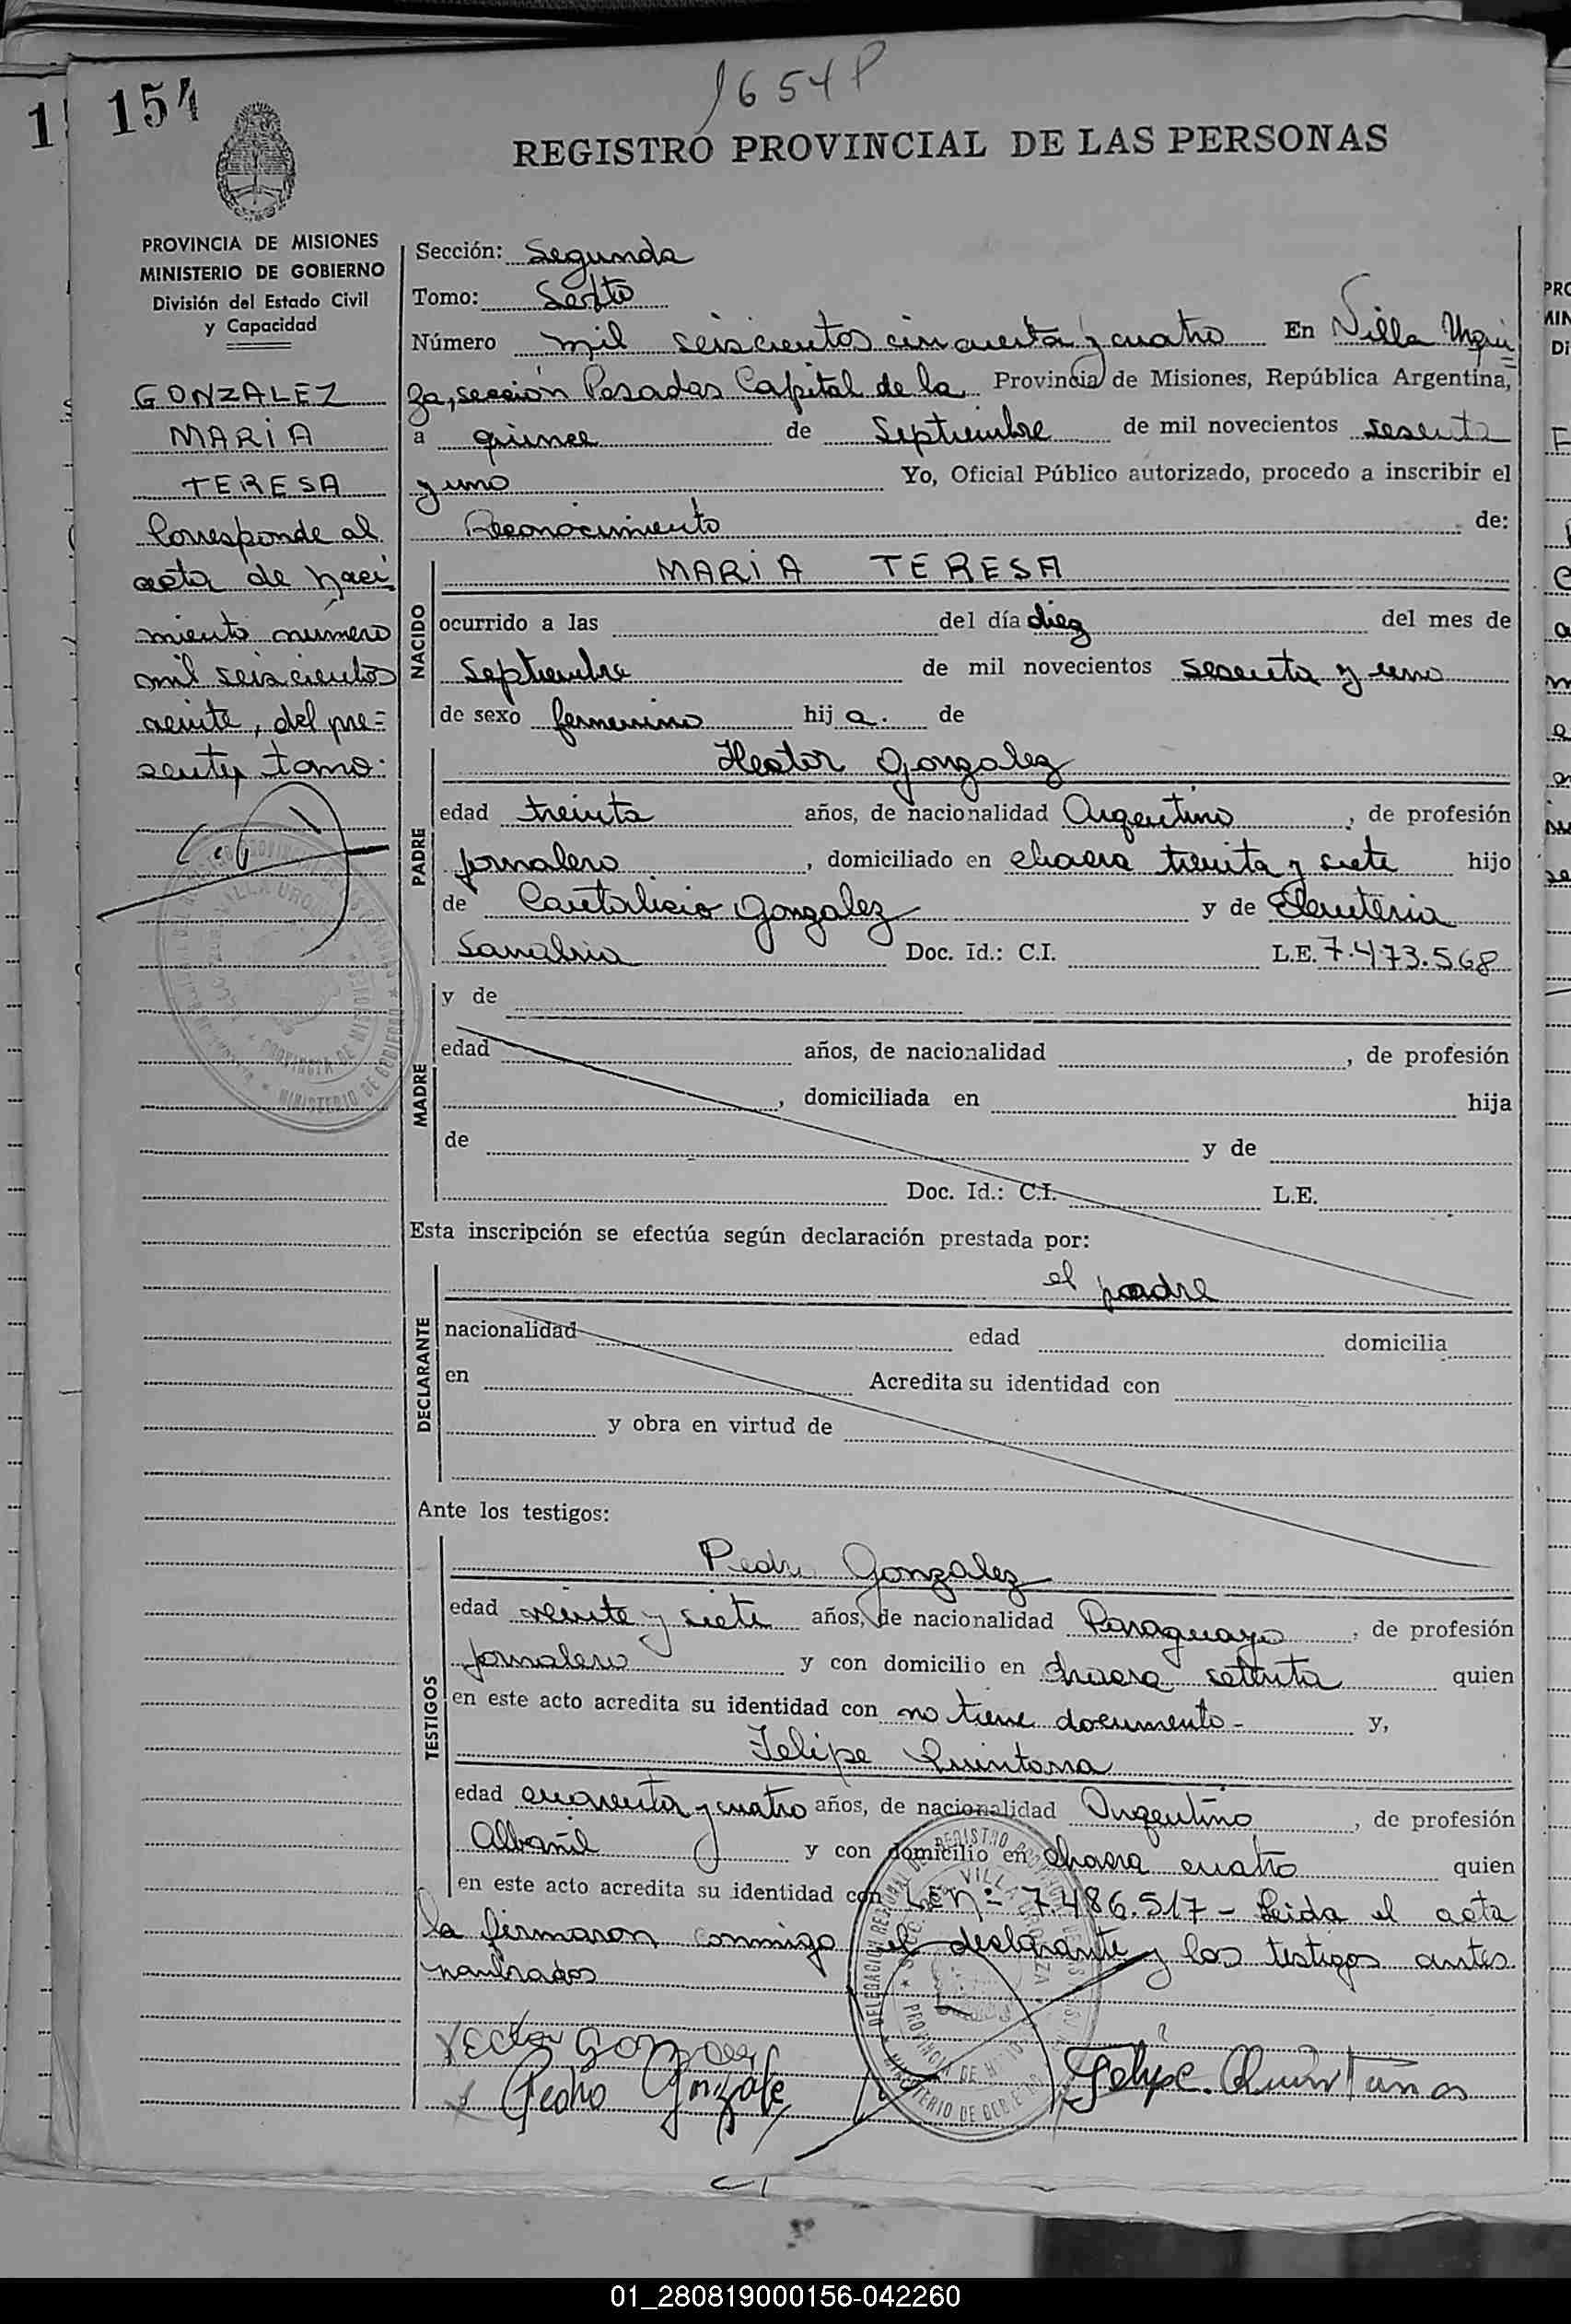 1654 P
154
REGISTRO PROVINCIAL DE LAS PERSONAS
PROVINCIA DE MISIONES
MINISTERIO DE GOBIERNO
División del Estado Civil
y Capacidad
GONZALEZ
MARIA
TERESA
Corresponde al
acta de naci
miento número
mil seiscientos
veinte, del pre=
sente tomo.
Sección: Segunda
Tomo: Sexto
Número mil seiscientos cincuenta y cuatro En Villa Urqui=
za, sección Posadas Capital de la Provincia de Misiones, República Argentina,
a quince de Septiembre de mil novecientos sesenta
y uno Yo, Oficial Público autorizado, procedo a inscribir el
Reconocimiento de:
NACIDO
MARIA TERESA
ocurrido a las del día diez del mes de
Septiembre de mil novecientos sesenta y uno
de sexo femenino hij a. de
PADRE
Hector Gonzalez
edad treinta años, de nacionalidad Argentino, de profesión
jornalero, domiciliado en chacra treinta y siete hijo
de Cantalicio Gonzalez y de Eleuteria
Sanabria Doc. Id.: C.I. L.E. 7.473.568
MADRE
y de
edad años, de nacionalidad , de profesión
, domiciliada en hija
de y de
Doc. Id.: C.I. L.E.
Esta inscripción se efectúa según declaración prestada por:
DECLARANTE
el padre
nacionalidad edad domicilia
en Acredita su identidad con
y obra en virtud de
Ante los testigos:
TESTIGOS
Pedro Gonzalez
edad veinte y siete años, de nacionalidad Paraguayo, de profesión
jornalero y con domicilio en chacra setenta quien
en este acto acredita su identidad con no tiene documento - y,
Felipe Quintana
edad cuarenta y cuatro años, de nacionalidad Argentino, de profesión
Albañil y con domicilio en chacra cuatro quien
en este acto acredita su identidad con L.E. Nº 7.486.517 - Leida el acta
la firmaron conmigo el declarante y los testigos antes
nombrados
Pedro Gonzale
Felipe. Quintana
01_280819000156-042260